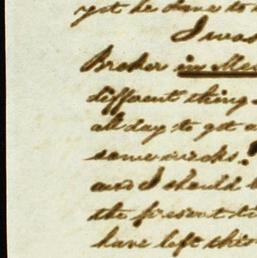 yet be done to
I was
Broker in
different thing
all day to get a
same weeks.
and I should
the present ti
have left this